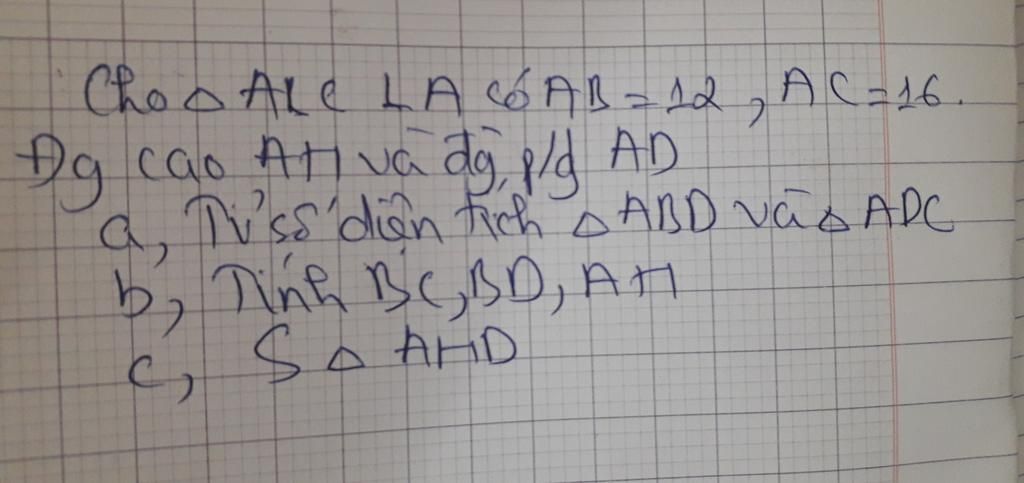 Cho △ ALC ⊥ A có AB = 12, AC = 16.
Đg cao AH và đg p/g AD
a, Tỉ số diện tích △ ABD và △ ADC
b, Tính BC, BD, AH
c, S △ AHD